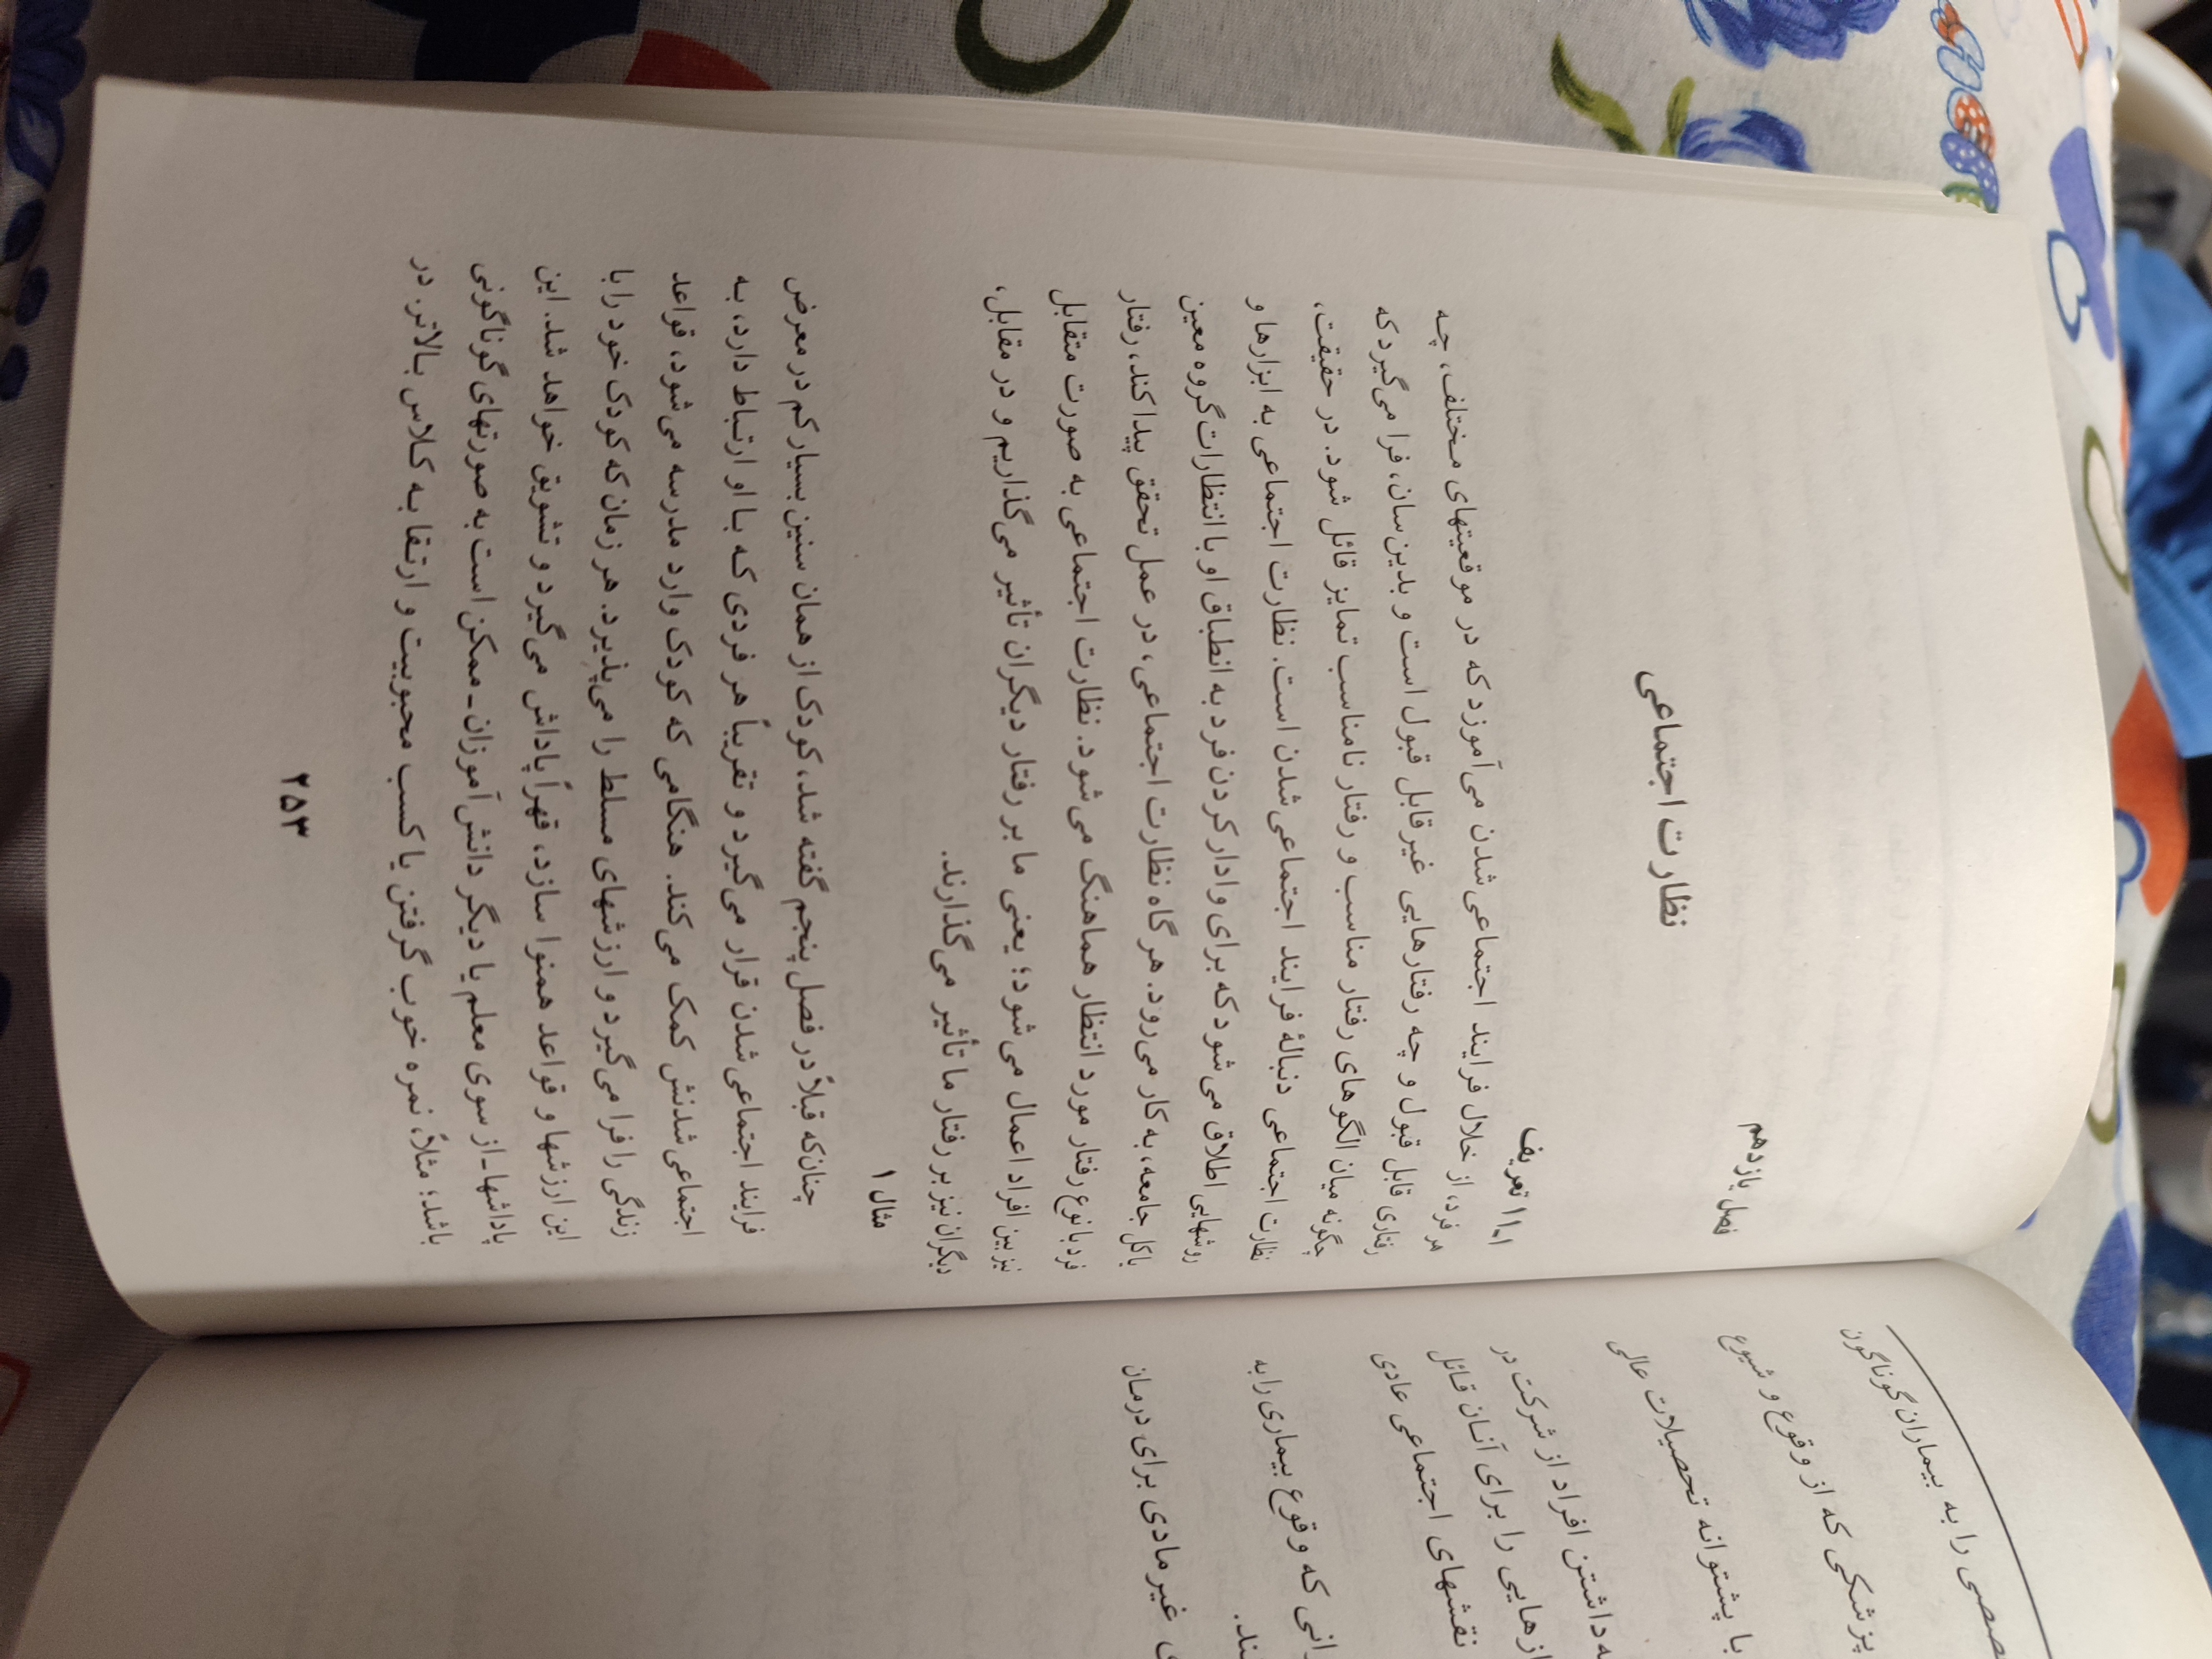 فصل یازدهم
نظارت اجتماعی
۱ـ۱۱ تعریف
هر فرد، از خلال فرایند اجتماعی شدن می‌آموزد که در موقعیتهای مختلف، چه
رفتاری قابل قبول و چه رفتارهایی غیرقابل قبول است و بدین‌سان، فرا می‌گیرد که
چگونه میان الگوهای رفتار مناسب و رفتار نامناسب تمایز قائل شود. در حقیقت،
نظارت اجتماعی دنبالهٔ فرایند اجتماعی شدن است. نظارت اجتماعی به ابزارها و
روشهایی اطلاق می‌شود که برای وادار کردن فرد به انطباق او با انتظارات گروه معین
یا کل جامعه، به کار می‌رود. هر گاه نظارت اجتماعی، در عمل تحقق پیدا کند، رفتار
فرد با نوع رفتار مورد انتظار هماهنگ می‌شود. نظارت اجتماعی به صورت متقابل
نیز بین افراد اعمال می‌شود؛ یعنی ما بر رفتار دیگران تأثیر می‌گذاریم و در مقابل،
دیگران نیز بر رفتار ما تأثیر می‌گذارند.
مثال ۱
چنان‌که قبلاً در فصل پنجم گفته شد، کودک از همان سنین بسیار کم در معرض
فرایند اجتماعی شدن قرار می‌گیرد و تقریباً هر فردی که با او ارتباط دارد، به
اجتماعی شدنش کمک می‌کند. هنگامی که کودک وارد مدرسه می‌شود، قواعد
زندگی را فرا می‌گیرد و ارزشهای مسلط را می‌پذیرد. هر زمان که کودک خود را با
این ارزشها و قواعد همنوا سازد، قهراً پاداش می‌گیرد و تشویق خواهد شد. این
پاداشها ـ از سوی معلم یا دیگر دانش‌آموزان ـ ممکن است به صورتهای گوناگونی
باشد؛ مثلاً، نمره خوب گرفتن یا کسب محبوبیت و ارتقا به کلاس بالاتر. در
۲۵۳
را به بیماران گوناگون
پزشکی که از وقوع و شیوع
با پشتوانه تحصیلات عالی
داشتن افراد از شرکت در
را برای آنان قائل
نقشهای اجتماعی عادی
که وقوع بیماری را به
غیر مادی برای درمان